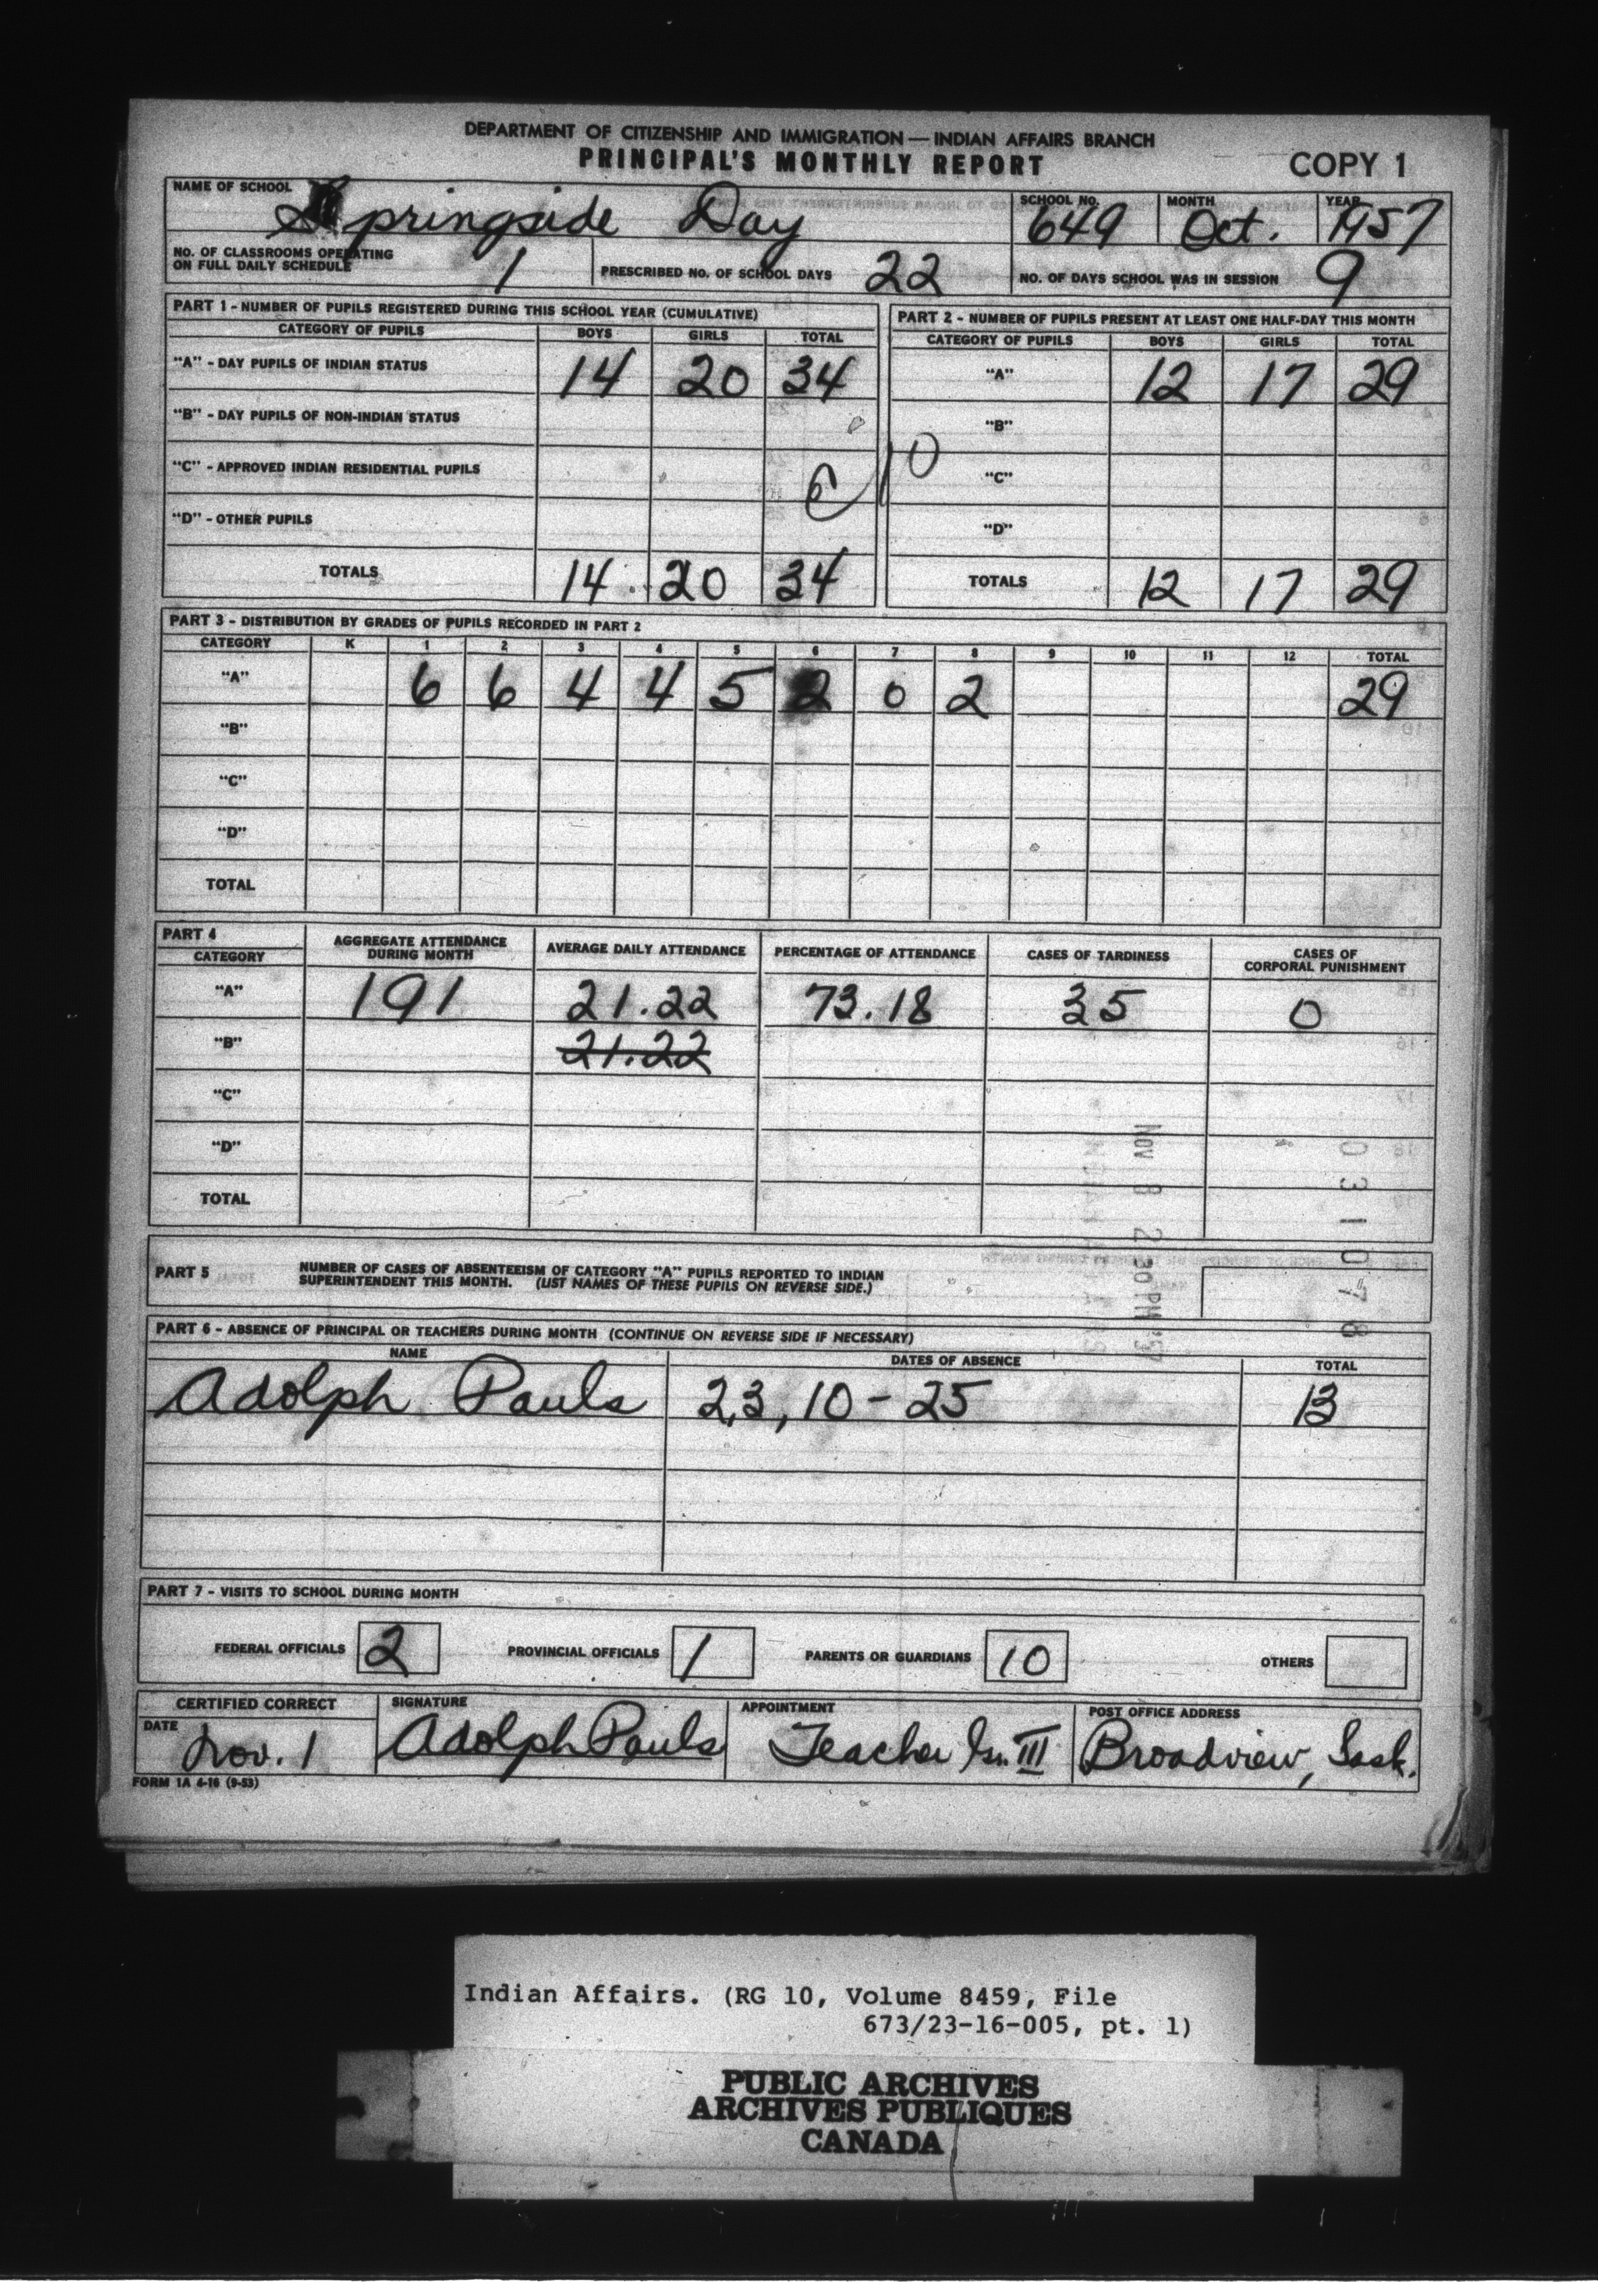 DEPARTMENT OF CITIZENSHIP AND IMMIGRATION — INDIAN AFFAIRS BRANCH
PRINCIPAL'S MONTHLY REPORT COPY 1
NAME OF SCHOOL Springside Day SCHOOL NO. 649 MONTH Oct. YEAR 1957
NO. OF CLASSROOMS OPERATING
ON FULL DAILY SCHEDULE 1 PRESCRIBED NO. OF SCHOOL DAYS 22 NO. OF DAYS SCHOOL WAS IN SESSION 9
PART 1 - NUMBER OF PUPILS REGISTERED DURING THIS SCHOOL YEAR (CUMULATIVE)
CATEGORY OF PUPILS BOYS GIRLS TOTAL
"A" - DAY PUPILS OF INDIAN STATUS 14 20 34
"B" - DAY PUPILS OF NON-INDIAN STATUS
"C" - APPROVED INDIAN RESIDENTIAL PUPILS
"D" - OTHER PUPILS
TOTALS 14 20 34
PART 2 - NUMBER OF PUPILS PRESENT AT LEAST ONE HALF-DAY THIS MONTH
CATEGORY OF PUPILS BOYS GIRLS TOTAL
"A" 12 17 29
"B"
"C"
"D"
TOTALS 12 17 29
PART 3 - DISTRIBUTION BY GRADES OF PUPILS RECORDED IN PART 2
CATEGORY K 1 2 3 4 5 6 7 8 9 10 11 12 TOTAL
"A" 6 6 4 4 5 2 0 2 29
"B"
"C"
"D"
TOTAL
PART 4
CATEGORY AGGREGATE ATTENDANCE DURING MONTH AVERAGE DAILY ATTENDANCE PERCENTAGE OF ATTENDANCE CASES OF TARDINESS CASES OF CORPORAL PUNISHMENT
"A" 191 21.22 73.18 35 0
"B" 21.22
"C"
"D"
TOTAL
NOV 8 2 30 PM '57
031078
PART 5 NUMBER OF CASES OF ABSENTEEISM OF CATEGORY "A" PUPILS REPORTED TO INDIAN
SUPERINTENDENT THIS MONTH. (LIST NAMES OF THESE PUPILS ON REVERSE SIDE.)
PART 6 - ABSENCE OF PRINCIPAL OR TEACHERS DURING MONTH (CONTINUE ON REVERSE SIDE IF NECESSARY)
NAME DATES OF ABSENCE TOTAL
Adolph Pauls 2,3, 10 - 25 13
PART 7 - VISITS TO SCHOOL DURING MONTH
FEDERAL OFFICIALS 2 PROVINCIAL OFFICIALS 1 PARENTS OR GUARDIANS 10 OTHERS
CERTIFIED CORRECT SIGNATURE APPOINTMENT POST OFFICE ADDRESS
DATE Nov. 1 Adolph Pauls Teacher III Broadview, Sask.
FORM 1A 4-16 (9-53)
Indian Affairs. (RG 10, Volume 8459, File
673/23-16-005, pt. 1)
PUBLIC ARCHIVES
ARCHIVES PUBLIQUES
CANADA